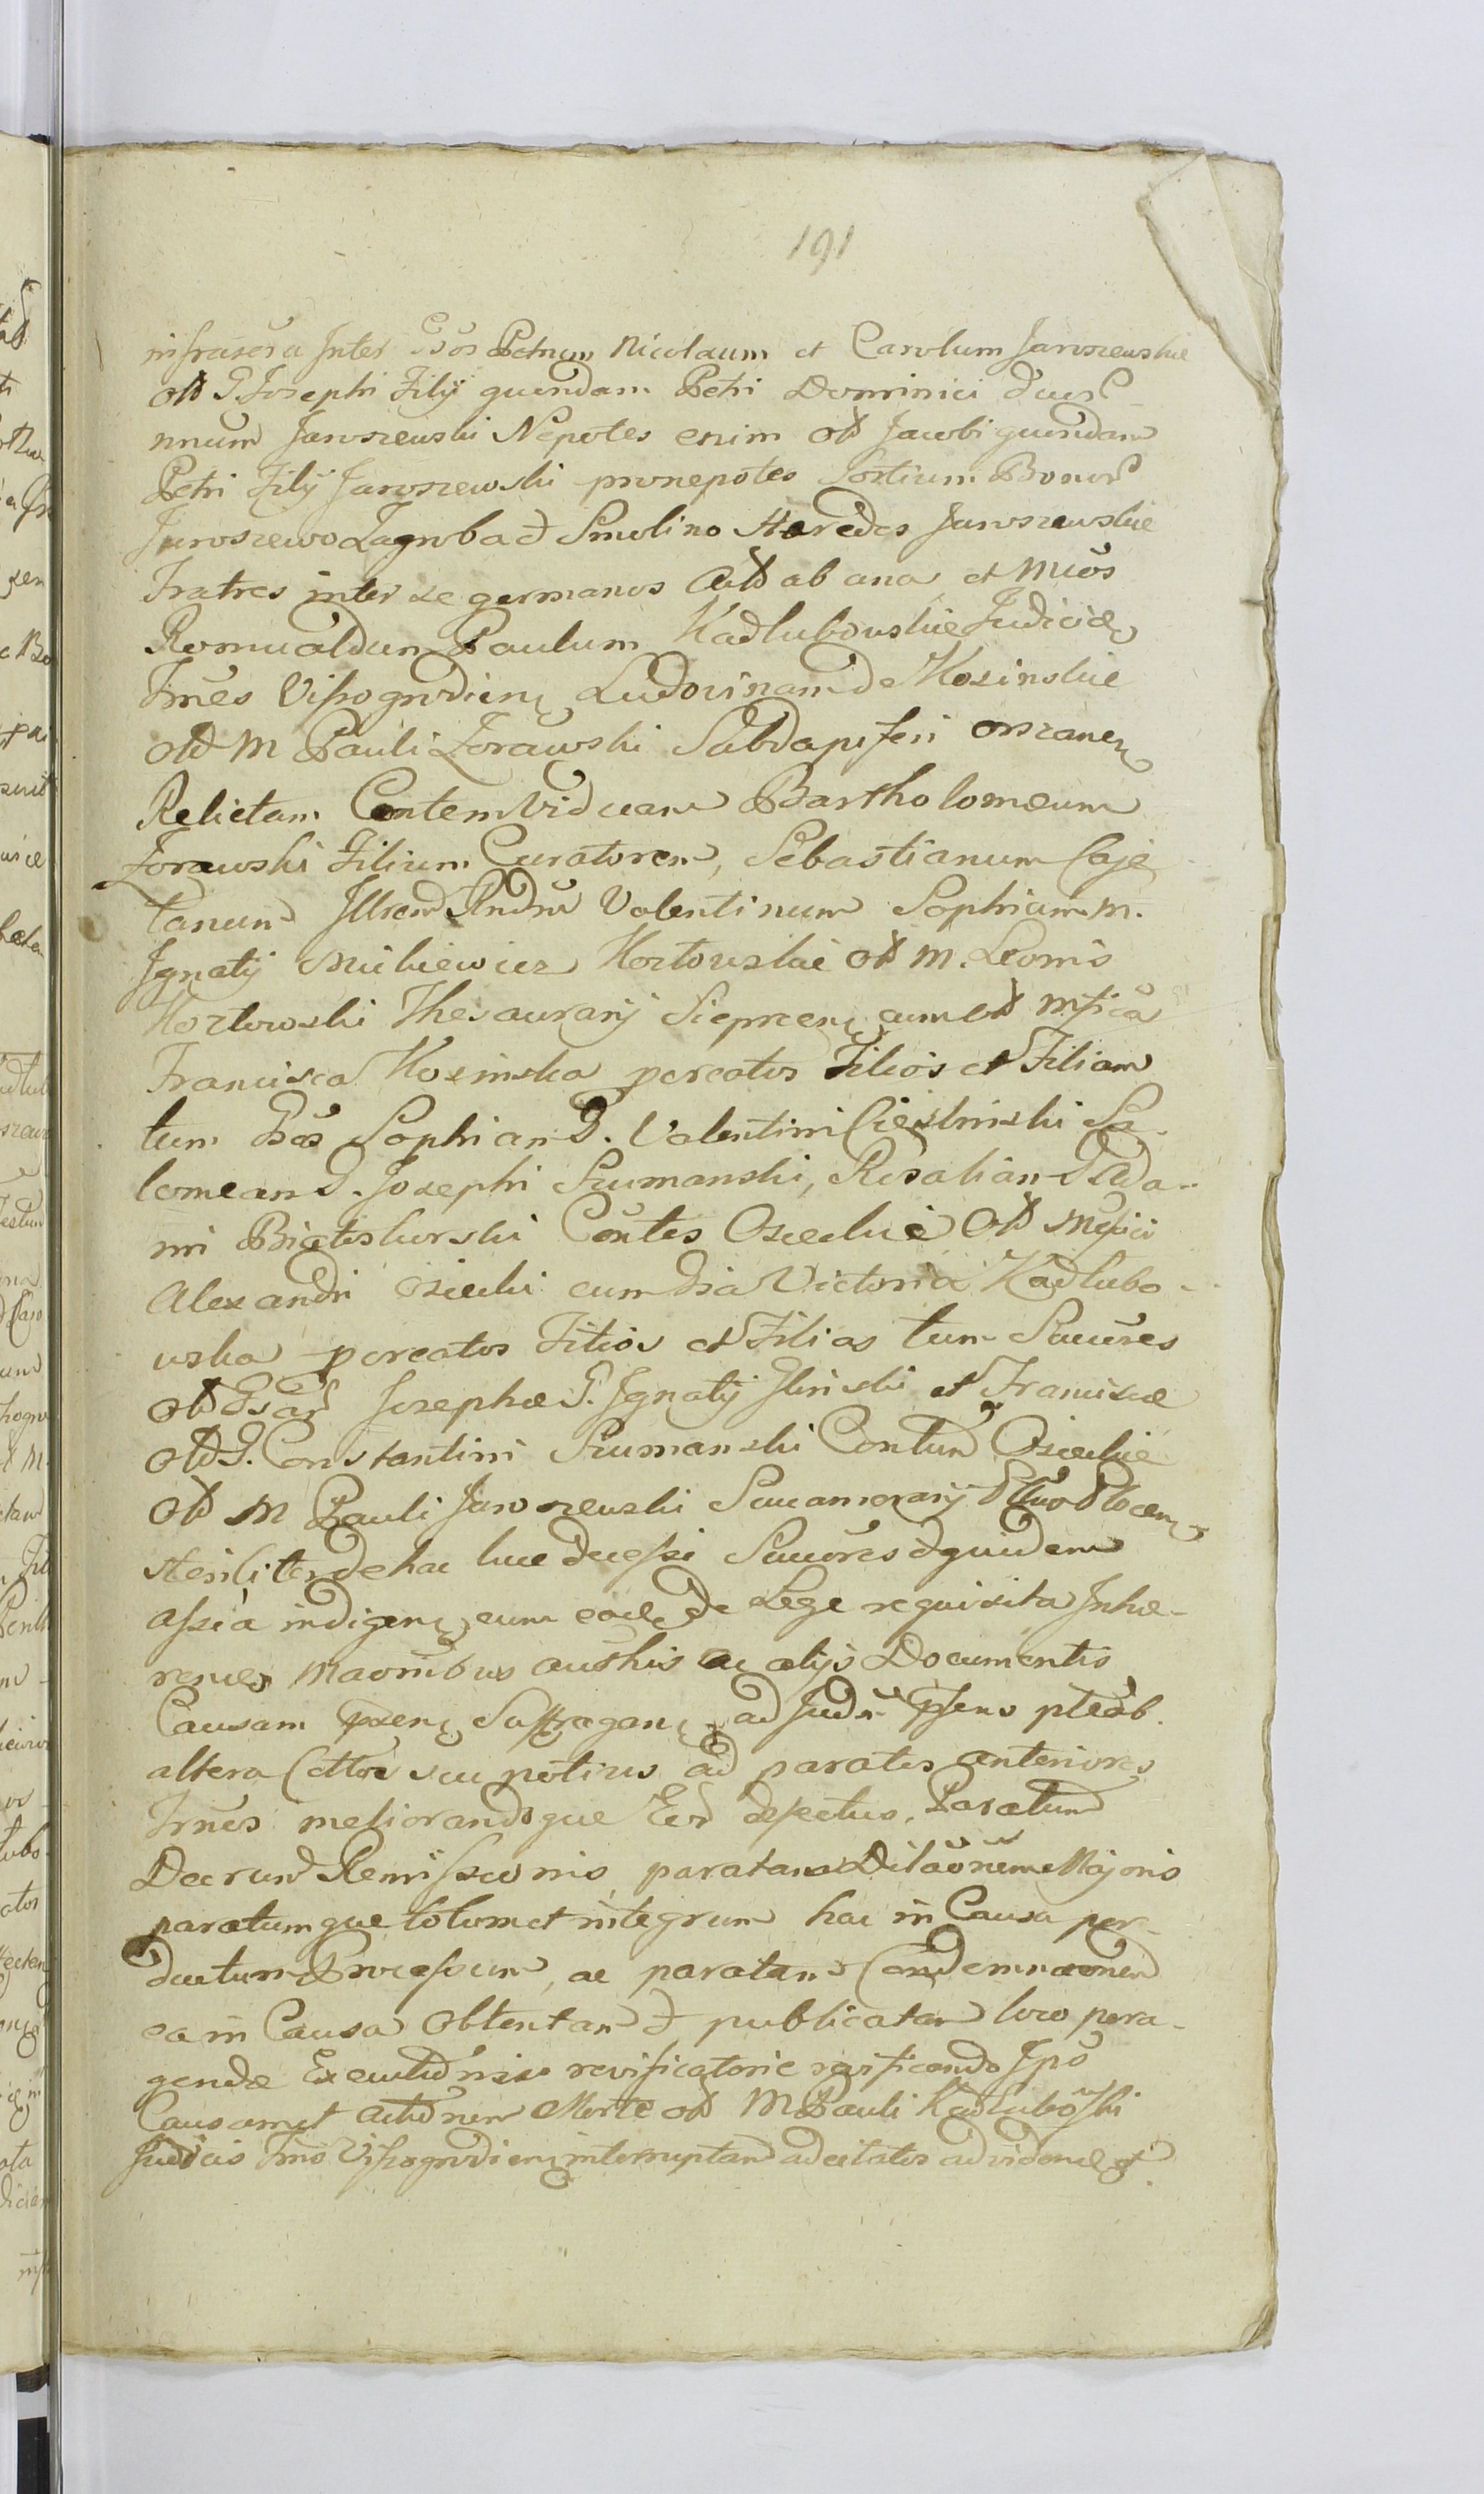 191
infrascr̄a Inter Gs̄os Petrum Nicolaum et Carolum Jaroszewskie
olt̄ G. Josephi Filij quondam Petri Dominici duor
nnum Jaroszewski Nepotes enim olt̄ Jacobi quondam
Petri Filij Jaroszewski pronepotes Sortium Bonor
Jaroszewo Zagroba et Smolino Haeredes Jaroszewskie
Fratres inter se germanos Act̄ ab una et Mcōs
Romualdum Paulum Kadłubowskie Judicid
Trn̄es Vissogrodien Ludovinam de Kosinskie
olt̄ M Pauli Zorawski Subdapiferi orszanen
Relictam Contem Viduam Bartholomeum
Zorawski Filium Curatorem, Sebastianum Caje
tanum Illrem Rndm̄ Valentinum Sophiam M.
Ignatij Mickiewicz Kozłowskie olt̄ M. Leonis
Kozłowski Thesaurarij Sieprcen cum olt̄ Mfica
Francisca Kosinska pcreatos Filios et Filiam
tum Gs̄as Sophiam G. Valentini Cieslinski Sa-
lomeam G. Josephi Szumanski, Rosaliam G. Ada-
mi Białoskorski Con̄tes Osieckie olt̄ Mfici
Alexandri Osiecki cum dn̄a Victoria Kadłubo-
wska pcreatos Filios et Filias tum Succ̄res
olt̄ Gsar Josephae G. Ignatij Ilinski et Franciscae
olt̄ G. Constantini Szumanski Contum Osieckie
olt̄ M Pauli Jaroszewski Succamerarij Plocen
steriliter de hac luce decessi Succ̄ores et quidem
assia indigen cum ea de Lege requisita Inhae-
rend Maonibus ac alijs Documentis
Causam pn̄en Suffragan ad Jud
altera Cttor seu potius ad paratas anteriores
Trn̄es meliorandoque Eor defectus, Paratum
Decrum Remissionis, paratam Dilāonem Majoris
paratumque totum et integrum hac in Causa per-
ductum Processum, ac paratam Condemnaonem
ea in Causa obtentam et publicatam loco pera-
gendae Executionis revificatorie revificando Ips̄
Causamet Actionem Morte olt̄ M Pauli Kadłubowski
Judicis Trn̄s Vissogrodien interruptam adcitatos ad videnđ et